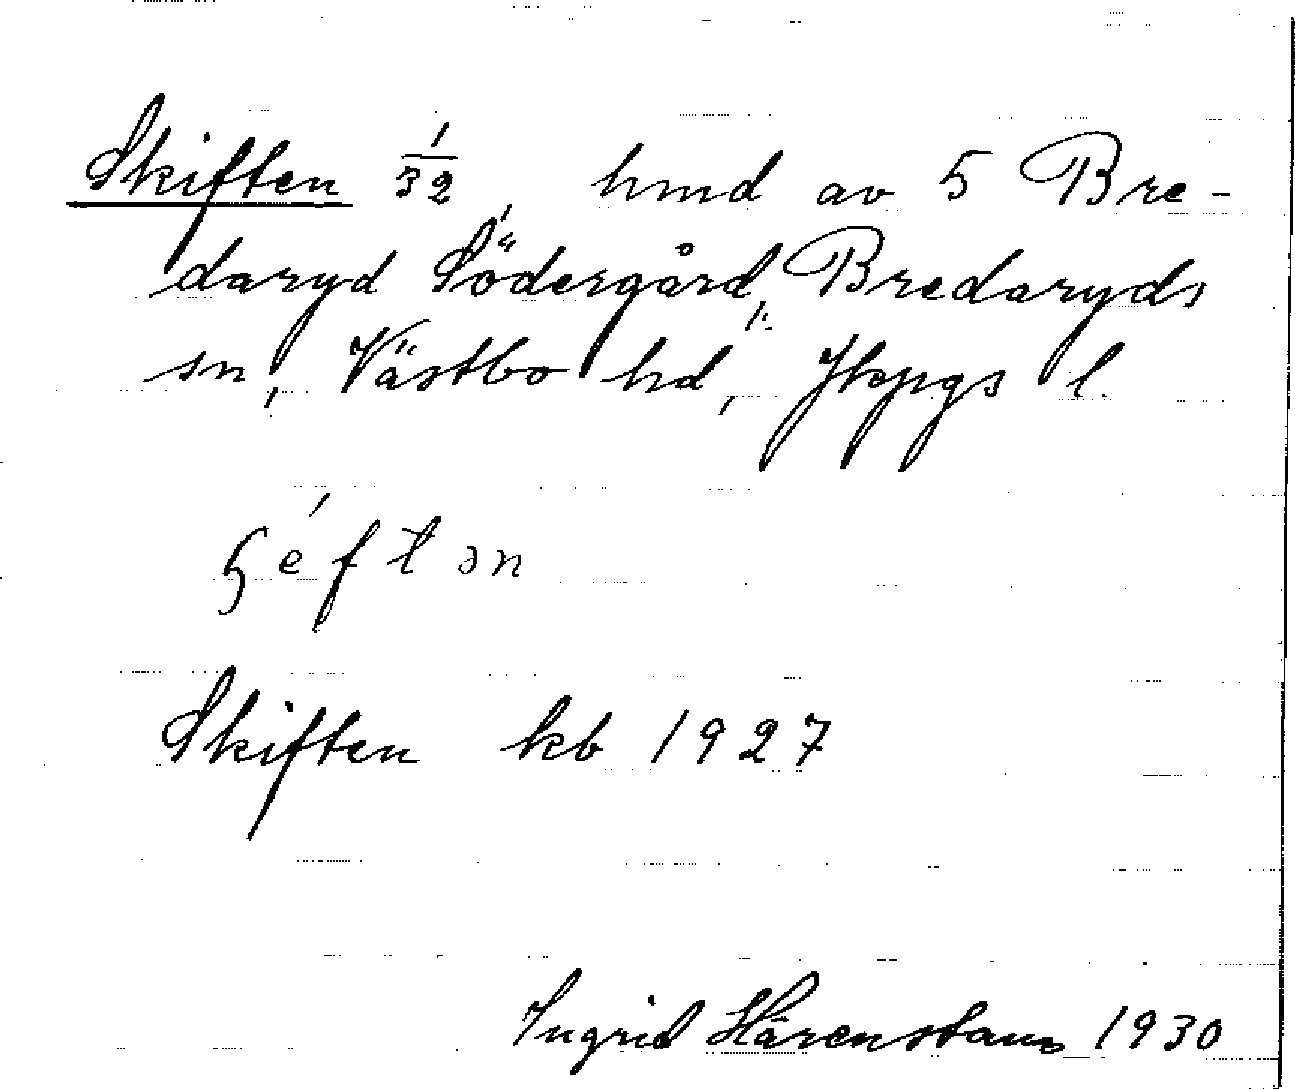 Skiften 1/32, hmd av 5 Bre-
daryd Södergård, Bredaryds
sn, Västbo hd, Jkpgs l.
ɧéftən
Skiften kb 1927
Ingrid Härenstam 1930